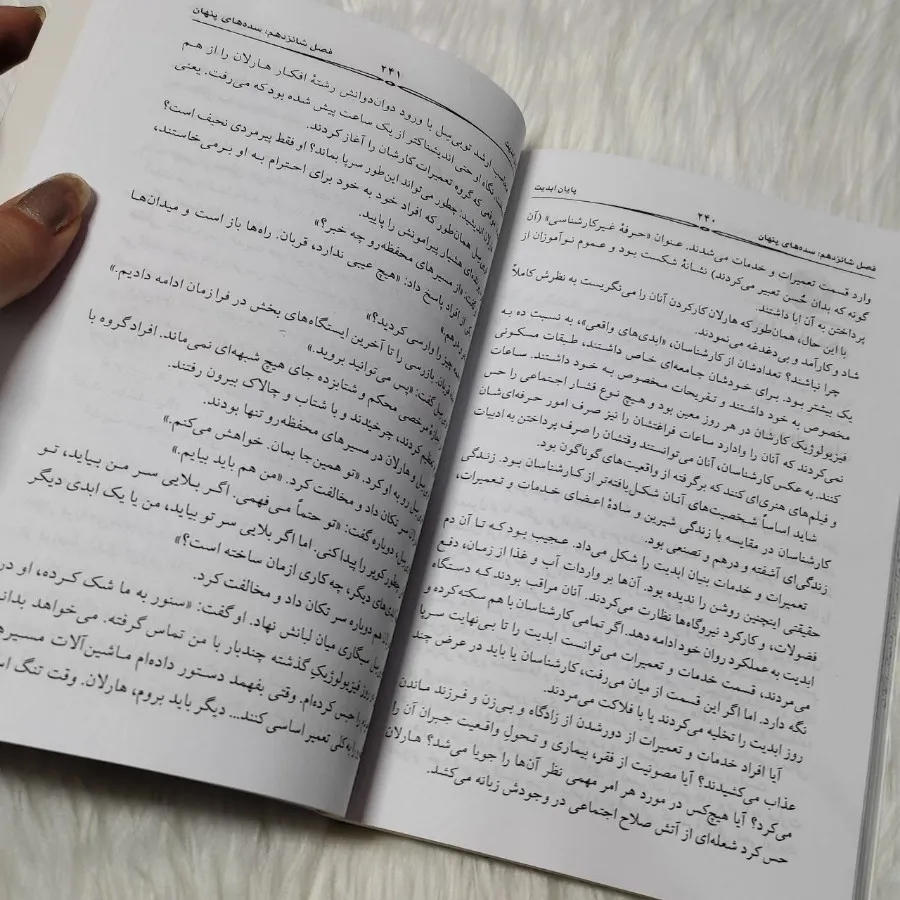 پایان ابدیت
۲۴۰
فصل شانزدهم: سده‌های پنهان
وارد قسمت تعمیرات و خدمات می‌شدند. عنوان «حرفهٔ غیرکارشناسی» (آن
گونه که بدان حُسن تعبیر می‌کردند) نشانهٔ شکست بود و عموم نوآموزان از
پرداختن به آن ابا داشتند.
با این حال، همان‌طور که هارلان کارکردن آنان را می‌نگریست به نظرش کاملاً
شاد و کارآمد و بی‌دغدغه می‌نمودند.
چرا نباشند؟ تعدادشان از کارشناسان، «ابدی‌های واقعی»، به نسبت ده به
یک بیشتر بود. برای خودشان جامعه‌ای خاص داشتند، طبقات مسکونی
مخصوص به خود داشتند و تفریحات مخصوص به خود داشتند. ساعات
فیزیولوژیک کارشان در هر روز معین بود و هیچ نوع فشار اجتماعی را حس
نمی‌کردند که آنان را وادارد ساعات فراغتشان را نیز صرف امور حرفه‌ای‌شان
کنند. به عکس کارشناسان، آنان می‌توانستند وقتشان را صرف پرداختن به ادبیات
و فیلم‌های هنری‌ای کنند که برگرفته از واقعیت‌های گوناگون بود.
شاید اساساً شخصیت‌های آنان شکل‌یافته‌تر از کارشناسان بود. زندگی
کارشناسان در مقایسه با زندگی شیرین و سادهٔ اعضای خدمات و تعمیرات،
زندگی‌ای آشفته و درهم و تصنعی بود.
تعمیرات و خدمات بنیان ابدیت را شکل می‌داد. عجیب بود که تا آن دم
حقیقتی اینچنین روشن را ندیده بود. آن‌ها بر واردات آب و غذا از زمان، دفع
فضولات، و کارکرد نیروگاه‌ها نظارت می‌کردند. آنان مراقب بودند که دستگاه
ابدیت به عملکرد روان خود ادامه دهد. اگر تمامی کارشناسان با هم سکته کرده و
می‌مردند، قسمت خدمات و تعمیرات می‌توانست ابدیت را تا بی‌نهایت سرپا
نگه دارد. اما اگر این قسمت از میان می‌رفت، کارشناسان یا باید در عرض چند
روز ابدیت را تخلیه می‌کردند یا با فلاکت می‌مردند.
آیا افراد خدمات و تعمیرات از دورشدن از زادگاه و بی‌زن و فرزند ماندن
عذاب می‌کشیدند؟ آیا مصونیت از فقره بیماری و تحول واقعیت جبران آن را
می‌کرد؟ آیا هیچ‌کس در مورد هر امر مهمی نظر آن‌ها را جویا می‌شد؟ هارلان
حس کرد شعله‌ای از آتش صلاح اجتماعی در وجودش زبانه می‌کشد.
فصل شانزدهم: سده‌های پنهان
۲۴۱
ارشد توبی سل با ورود دوان‌دوانش رشتهٔ افکار هارلان را از هم
نگاه او حتی اندیشناکتر از یک ساعت پیش شده بود که می‌رفت. یعنی
که گروه تعمیرات کارشان را آغاز کردند.
اندیشید، چطور می‌تواند این‌طور سرپا بماند؟ او فقط پیرمردی نحیف است؟
همان‌طور که افراد خود به خود برای احترام به او برمی‌خاستند،
هشیار پیرامونش را پایید.
گفت: «از مسیرهای محفظه‌رو چه خبر؟»
از افراد پاسخ داد: «هیچ عیبی ندارد، قربان. راه‌ها باز است و میدان‌ها
چیز را وارسی کردید؟»
قربان. بازرسی را تا آخرین ایستگاه‌های بخش در فرازمان ادامه دادیم.»
گفت: «پس می‌توانید بروید.»
مرخصی محکم و شتابزده جای هیچ شبهه‌ای نمی‌ماند. افراد گروه با
کردند، چرخیدند و با شتاب و چالاک بیرون رفتند.
و هارلان در مسیرهای محفظه‌رو تنها بودند.
رو به او کرد. «تو همین‌جا بمان. خواهش می‌کنم.»
سر تکان داد و مخالفت کرد. «من هم باید بیایم.»
دوباره گفت: «تو حتماً می‌فهمی. اگر بلایی سر من بیاید، تو
چطور کوپر را پیدا کنی. اما اگر بلایی سر تو بیاید، من یا یک ابدی دیگر
های دیگر، چه کاری ازمان ساخته است؟»
دوباره سر تکان داد و مخالفت کرد.
سیگاری میان لبانش نهاد. او گفت: «سنور به ما شک کرده، او در
روز فیزیولوژیک گذشته چندبار با من تماس گرفته. می‌خواهد بداند
را حبس کرده‌ام. وقتی بفهمد دستور داده‌ام ماشین‌آلات مسیرهای
را به کلی تعمیر اساسی کنند... دیگر باید بروم، هارلان. وقت تنگ